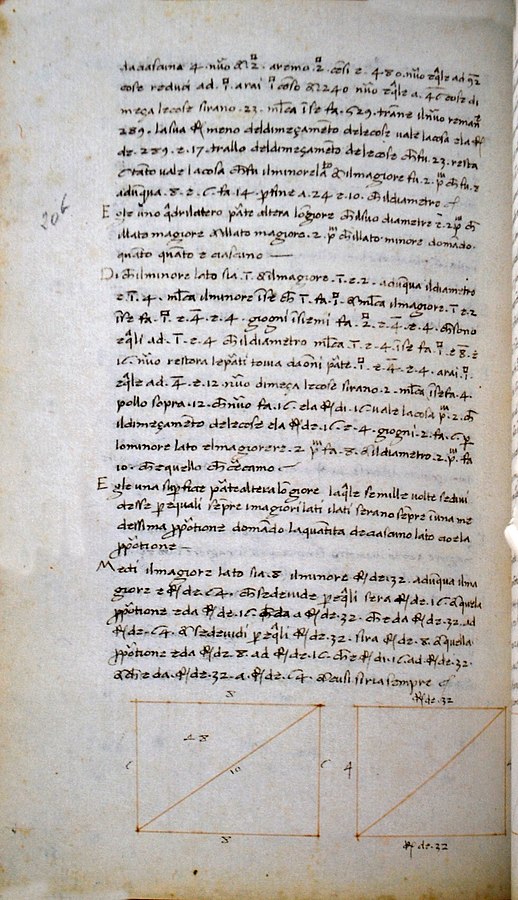 da ciascuna 4. nũo & 2. aremo 2. cosi e. 480. nũo eq̃le ad 92
cose reduci ad 1. arai 1 coso & 240 nũo eq̃le a. 46 cose di
meça le cose sirano. 23. mLca ise fa. 529. trane il nũo remañ
289. la sua R meno del dimeçamẽto dele cose vale la cosa e la R
de. 289. e. 17. trallo del dimeçamẽto dele cose che fu. 23. resta
6 tãto vale la cosa che fu il minore lato & il magiore fu. 2. più che fu. 8
adũqua. 8. e. 6. fa. 14. ptine a. 24 e. 10. che il diametro
E gle uno q̃drilatero pãte altera lõgiore che il suo diametre è. 2 più che
il lato magiore & il lato magiore. 2. più che il lato minore domãdo.
quãto quãto e ciascuno
Di che il minore lato sia. 1. & il magiore. 1. e. 2. adũqua il diametro
e. 1. 4. mLca il minore ise che 1. fa. 1. & mLca il magiore. 1. e 2
ise fa. 1. e. 4. e. 4. giõgni isiemi fa. 2. e. 4. e. 4. che sono
eq̃li ad. 1. e. 4 che il diametro mLca. 1. e. 4. ise fa. 1. e. 8. e
16. nũo restora le pãti da oni pãte. 1. e. 4. e. 4. arai. 1.
eq̃le ad. 4. e. 12. nũo dimeça le cose sirano. 2. mLca ise fa 4.
pollo sopra. 12. che nũo fa. 16. e la R di. 16 vale la cosa più. 2. che
il dimeçamẽto dele cose e la R de. 16 e. 4. giõgni. 2. fa. 6. p
lo minore lato el magiore e. 2 più fa. 8. & il diametro. 2. più. fa
10. che e quello che
E gle una supficie pãte altera lõgiore la q̃le se mille volte se divi
desse p equali sempre i magiori lati i lati serano sempre i una me
dessima pportione domãdo la quantita de ciascuno lato cioe la
pportione
Metti il magiore lato sia. 8 il minore R de. 32. adũqua il ma
giore e R de. 64. che se devide p eq̃li sera R de. 16 & quella
pportione e da R de. 16. a R de. 32. che e da R de. 32. ad
R de. 64. & se devidi p eq̃li R de. 32. sira R de. 8 & quella
pportione e da R de. 8. ad R de. 16. che e R di. 16. ad R de. 32.
& che e da. R de. 32. a. R de. 64 & cusi siria sempre
8
R de. 32
48
6
10
6
4
8
R de. 32
206